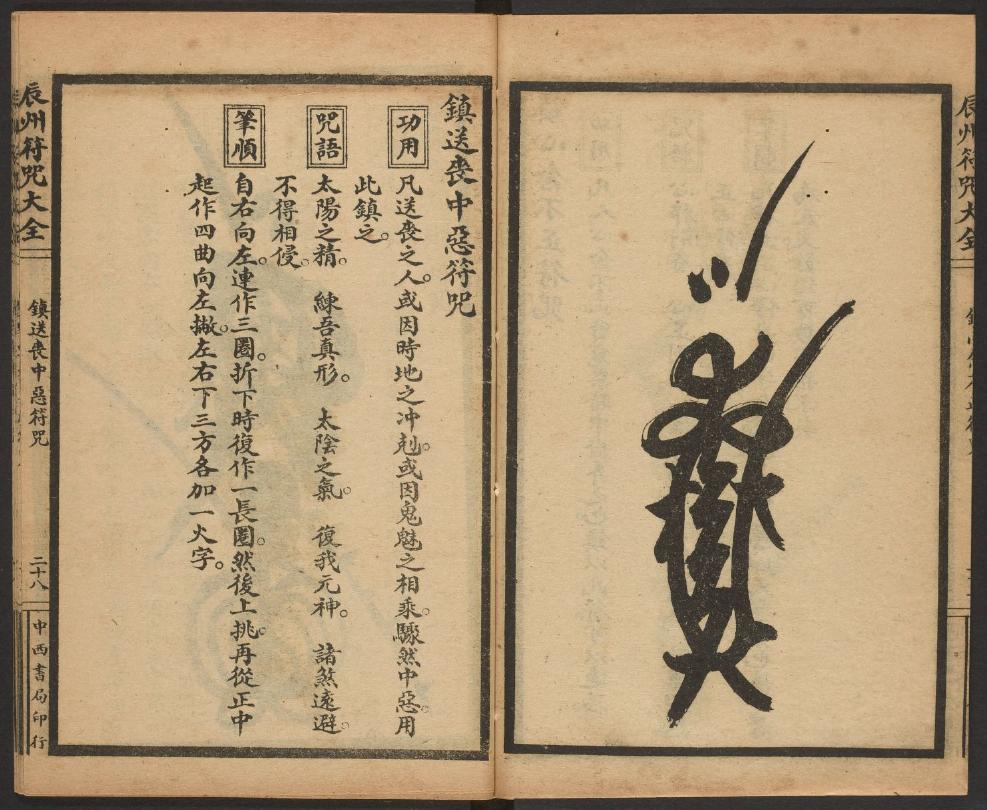 辰州符咒大全
鎮送喪中惡符咒
功用
凡送喪之人。或因時地之冲剋。或因鬼魅之相乘。驟然中惡。用
此鎮之。
咒語
太陽之精。　練吾真形。　太陰之氣。　復我元神。　諸煞遠避。
不得相侵。
筆順
自右向左。連作三圈。折下時復作一長圈。然後上挑。再從正中
起作四曲向左撇。左右下三方各加一火字。
辰州符咒大全
鎮送喪中惡符咒
二十八
中西書局印行